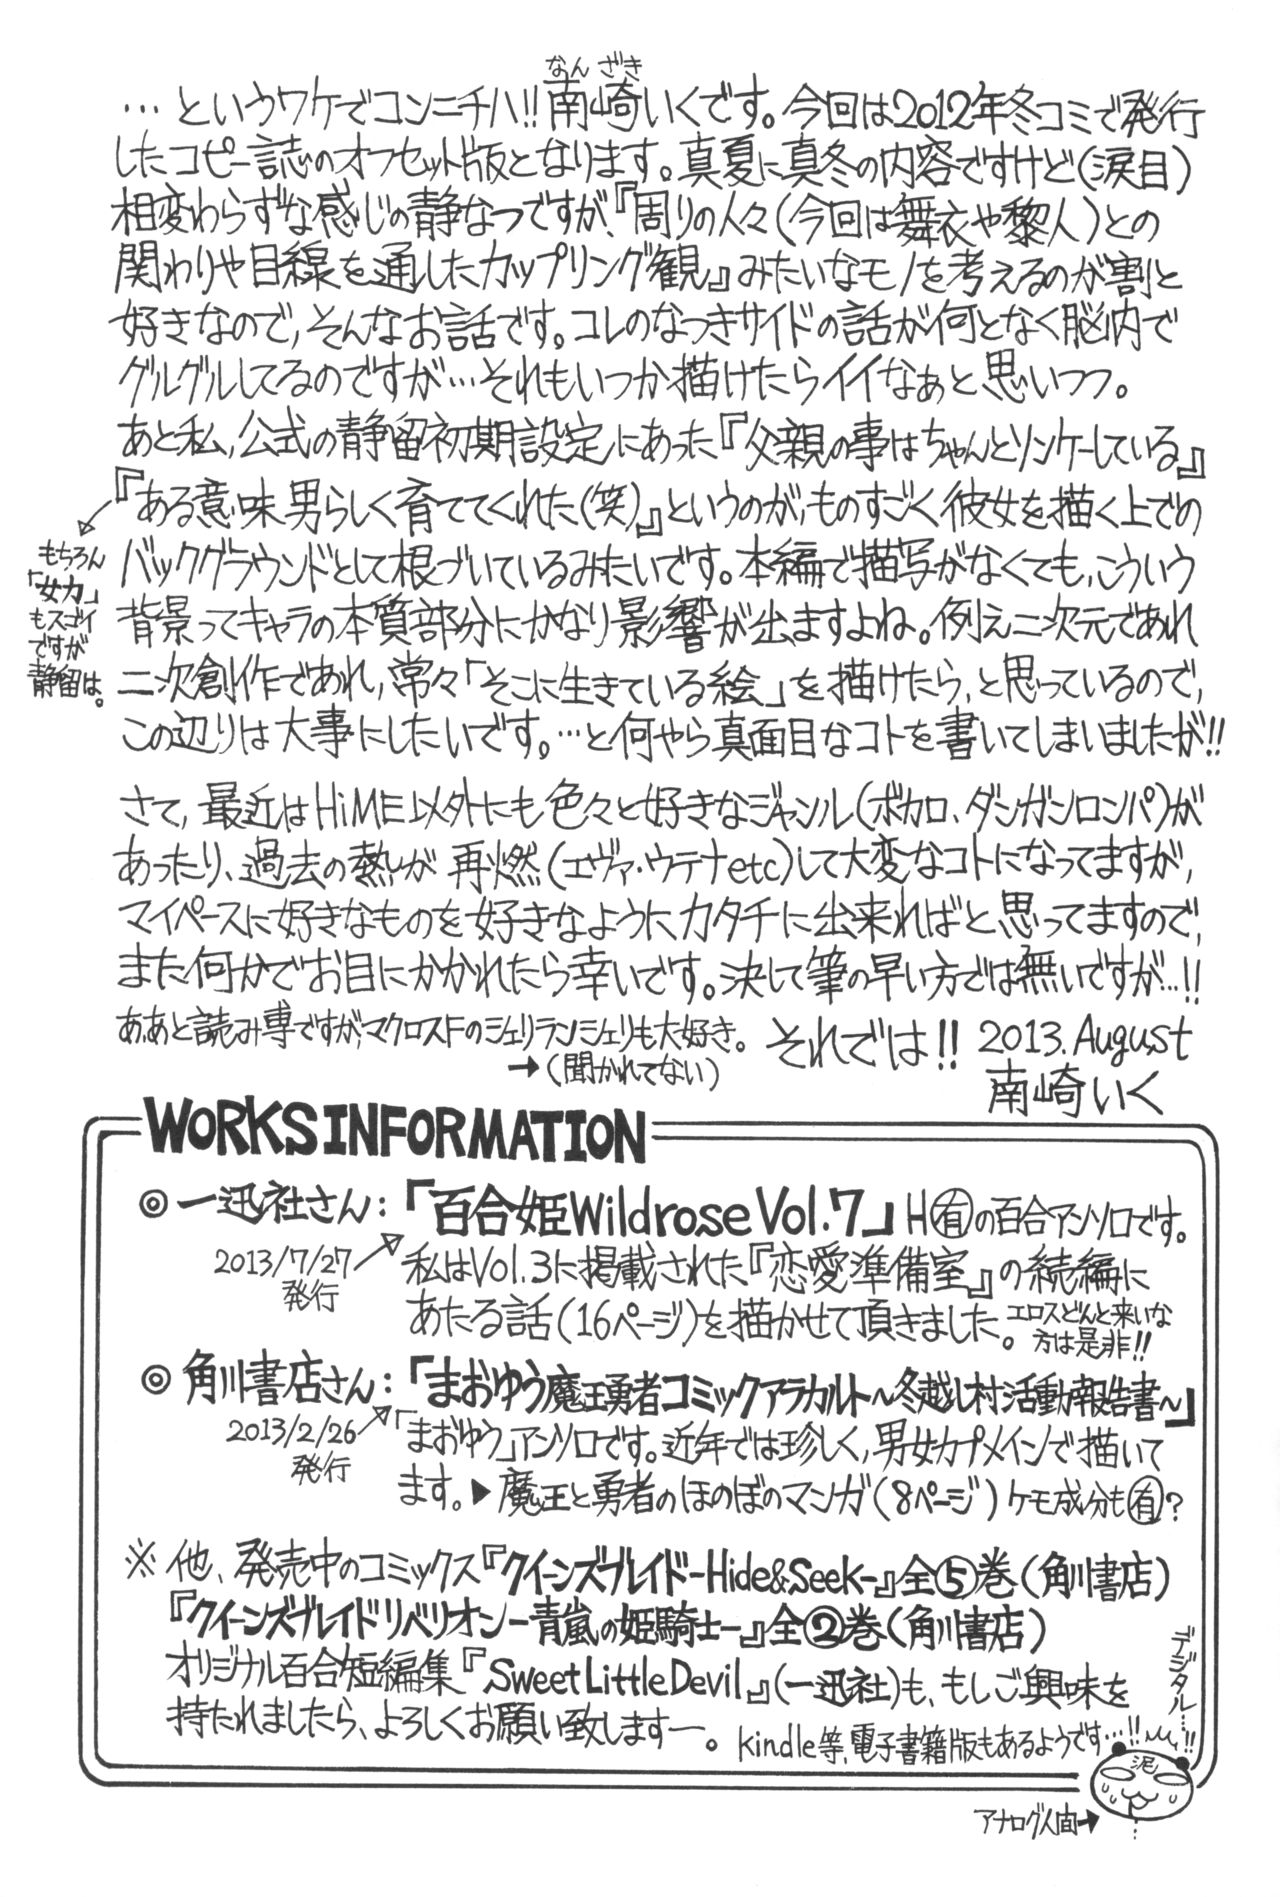 なんざき
…というワケでコンニチハ!!南崎いくです。今回は2012年冬コミで発行
したコピー誌のオフセット版となります。真夏に真冬の内容ですけど(涙目)
相変わらずな感じの静なつですが、『周りの人々(今回は舞衣や黎人)との
関わりや目線を通したカップリング観』みたいなモノを考えるのが割と
好きなので、そんなお話です。コレのなつきサイドの話が何となく脳内で
グルグルしてるのですが…それもいつか描けたらイイなぁと思いつつ。
あと私、公式の静留初期設定にあった『父親の事はちゃんとソンケーしている』
『ある意味男らしく育ててくれた(笑)』というのが、ものすごく彼女を描く上での
バックグラウンドとして根づいているみたいです。本編で描写がなくても、こういう
背景ってキャラの本質部分にかなり影響が出ますよね。例え二次元であれ
二次創作であれ、常々「そこに生きている絵」を描けたら、と思っているので、
この辺りは大事にしたいです。…と何やら真面目なコトを書いてしまいましたが!!
もちろん
「女力」
もスゴイ
ですが
静留は。
さて、最近はHiME以外にも色々と好きなジャンル(ボカロ、ダンガンロンパ)が
あったり、過去の熱が再燃(エヴァ・ウテナetc)して大変なコトになってますが、
マイペースに好きなものを好きなようにカタチに出来ればと思ってますので、
また何かでお目にかかれたら幸いです。決して筆の早い方では無いですが…!!
あ、あと読み専ですが、マクロスFのシェリランシェリも大好き。
→(聞かれてない)
それでは!! 2013.August
南崎いく
WORKS INFORMATION
◎一迅社さん:「百合姫Wildrose Vol.7」H㊒の百合アンソロです。
2013/7/27
発行
私はVol.3に掲載された『恋愛準備室』の続編に
あたる話(16ページ)を描かせて頂きました。
エロスどんと来いな
方は是非!!
◎角川書店さん:「まおゆう魔王勇者コミックアラカルト～冬越し村活動報告書～」
2013/2/26
発行
「まおゆう」アンソロです。近年では珍しく、男女カプメインで描いて
ます。▶魔王と勇者のほのぼのマンガ(8ページ)ケモ成分も㊒?
※他、発売中のコミックス『クイーンズブレイド-Hide&Seek-』全⑤巻(角川書店)
『クイーンズブレイドリベリオン-青嵐の姫騎士-』全②巻(角川書店)
オリジナル百合短編集『Sweet Little Devil』(一迅社)も、もしご興味を
持たれましたら、よろしくお願い致しますー。
kindle等、電子書籍版もあるようです…!!
デジタル…!!
泥
アナログ人間→